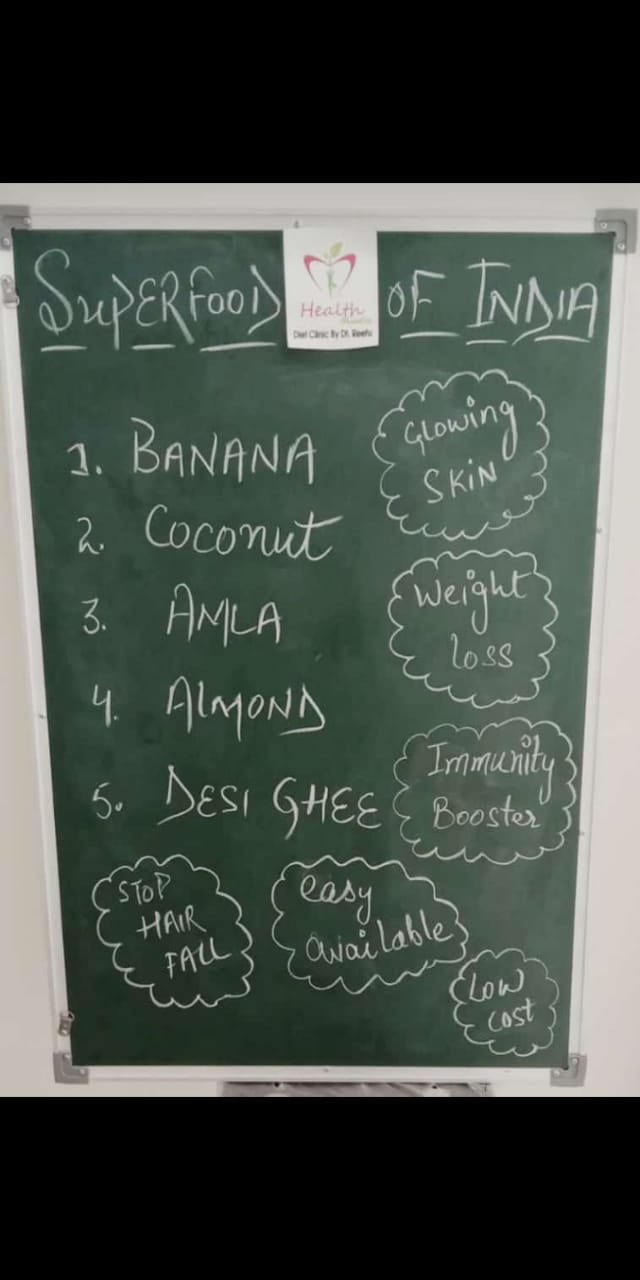 SUPERFOOD OF INDIA
Health
Diet Clinic By Dt. Reetu
1. BANANA
2. Coconut
3. AMLA
4. ALMOND
5. DESI GHEE
Glowing
SKIN
Weight
loss
Immunity
Booster
STOP
HAIR
FALL
easy
available
Low
cost